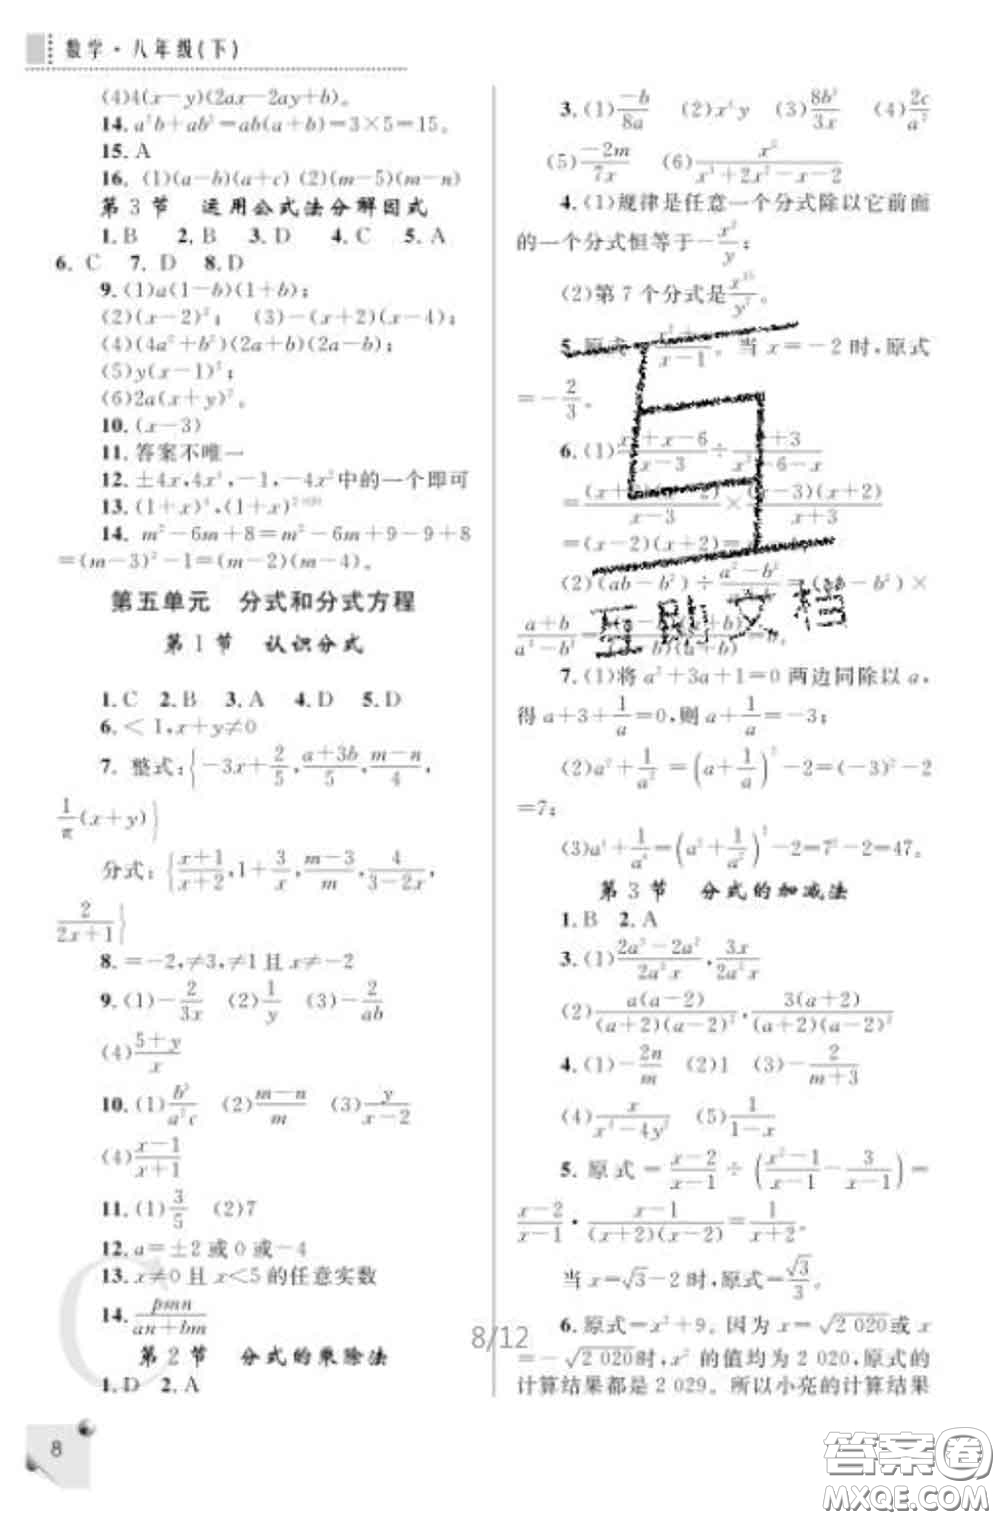 数学·八年级(下)
(4)4(x-y)(2ax-2ay+b)。
14. a²b+ab²=ab(a+b)=3×5=15。
15. A
16. (1)(a-b)(a+c) (2)(m-5)(m-n)
第3节 运用公式法分解因式
1. B 2. B 3. D 4. C 5. A
6. C 7. D 8. D
9. (1)a(1-b)(1+b);
(2)(x-2)²; (3)-(x+2)(x-4);
(4)(4a²+b²)(2a+b)(2a-b);
(5)y(x-1)²;
(6)2a(x+y)²。
10. (x-3)
11. 答案不唯一
12. ±4x,4x⁴,-1,-4x²中的一个即可
13. (1+x)⁴,(1+x)
14. m²-6m+8=m²-6m+9-9+8
=(m-3)²-1=(m-2)(m-4)。
第五单元 分式和分式方程
第1节 认识分式
1. C 2. B 3. A 4. D 5. D
6. <1,x+y≠0
7. 整式:{-3x+2/5,(a+3b)/5,(m-n)/4,
1/π(x+y)}
分式:{(x+1)/(x+2),1+3/x,(m-3)/m,4/(3-2x),
2/(2x+1)}
8. =-2,≠3,≠1且x≠-2
9. (1)-2/(3x) (2)1/y (3)-2/(ab)
(4)(5+y)/x
10. (1)b²/(a²c) (2)(m-n)/m (3)y/(x-2)
(4)(x-1)/(x+1)
11. (1)3/5 (2)7
12. a=±2或0或-4
13. x≠0且x<5的任意实数
14. pmn/(an+bm)
第2节 分式的乘除法
1. D 2. A
3. (1)-b/(8a) (2)x²y (3)8b²/(3x) (4)2c/a²
(5)-2m/(7x) (6)x²/(x³+2x²-x-2)
4. (1)规律是任意一个分式除以它前面
的一个分式恒等于-x²/y;
(2)第7个分式是x¹⁵/y⁷。
5. 原式 x-1。当x=-2时,原式
=-2/3。
6. (1) +x-6/(x-3)÷ +3/(x²-6-x)
= x-3 × (x-3)(x+2)/(x+3)
=(x-2)(x+2)=
(2)(ab-b²)÷(a²-b²)/ = -b²)×
(a+b)/(a²-b²)= b)(a+b) =b。
7. (1)将a²+3a+1=0两边同除以a,
得a+3+1/a=0,则a+1/a=-3;
(2)a²+1/a²=(a+1/a)²-2=(-3)²-2
=7;
(3)a⁴+1/a⁴=(a²+1/a²)²-2=7²-2=47。
第3节 分式的加减法
1. B 2. A
3. (1)(2a³-2a²)/(2a²x),3x/(2a²x)
(2)a(a-2)/((a+2)(a-2)²),3(a+2)/((a+2)(a-2)²)
4. (1)-2n/m (2)1 (3)-2/(m+3)
(4)x/(x²-4y²) (5)1/(1-x)
5. 原式=(x-2)/(x-1)÷((x²-1)/(x-1)-3/(x-1))=
(x-2)/(x-1)·(x-1)/((x+2)(x-2))=1/(x+2)。
当x=√3-2时,原式=√3/3。
6. 原式=x²+9。因为x=√2 020或x
=-√2 020时,x²的值均为2 020,原式的
计算结果都是2 029。所以小亮的计算结果
8/12
8
互助文档
答案圈
MXQE.COM